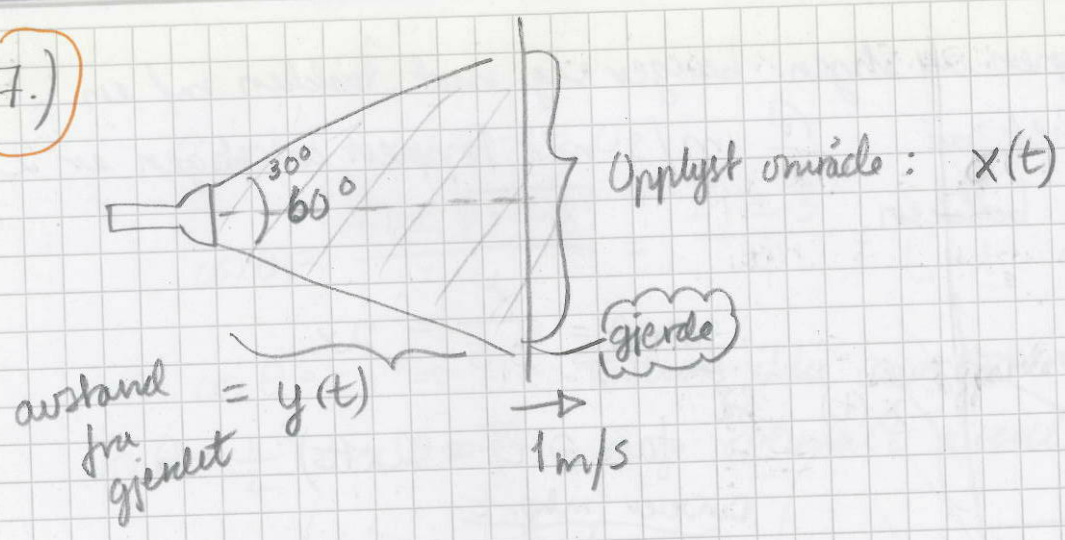 7.)
30°
60°
Opplyst område : x(t)
gjerde
avstand = y(t)
fra
gjerdet
1m/s